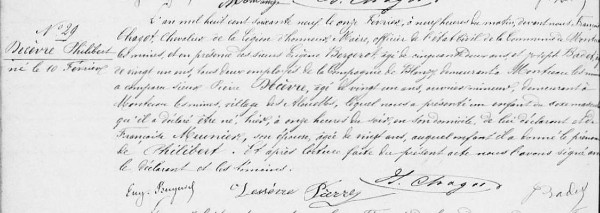 N° 29
Decèvre Philibert
né le 10 Février
L'an mil huit cent soixante neuf le onze Février, à neuf heures du matin, devant nous François
Chagot, Chevalier de la Légion d'honneur, Maire, officier de l'état civil de la Commune de Montceau
les mines, et en présence des sieurs Eugène Bergeret, âgé de cinquante deux ans et Joseph Badet,
de vingt un ans, tous deux employés de la Compagnie de Blanzy, demeurant à Montceau les mines
a comparu sieur Pierre Decèvre, âgé de vingt un ans, ouvrier mineur, demeurant à
Montceau les mines, village des Alouettes, lequel nous a présenté un enfant du sexe masculin
qu'il a déclaré être né, hier, à onze heures du soir, en son domicile, de lui déclarant et de
Françoise Meunier, son épouse, âgée de vingt ans, auquel enfant il a donné le prénom
de Philibert. Et après lecture faite du présent acte nous l'avons signé avec
le déclarant et les témoins.
Eug. Bergeret Pierre J. Chagot J. Badet